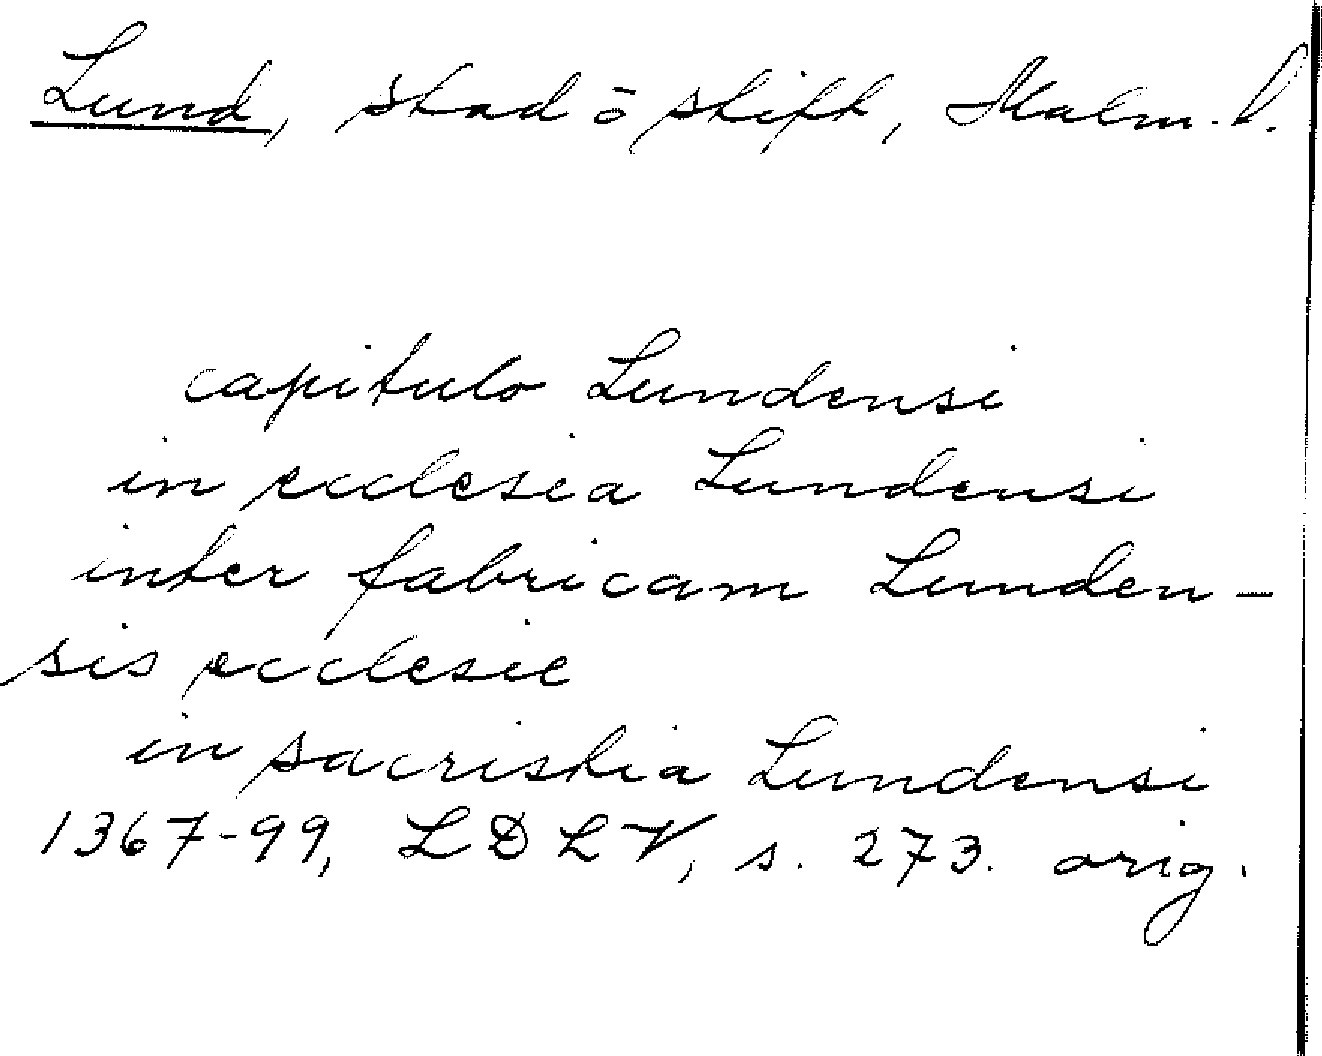 Lund, stad o stift, Malm. l.
capitulo Lundensi
in ecclesia Lundensi
inter fabricam Lunden-
sis ecclesie
in sacristia Lundensi
1367-99, LDLV, s. 273. orig.